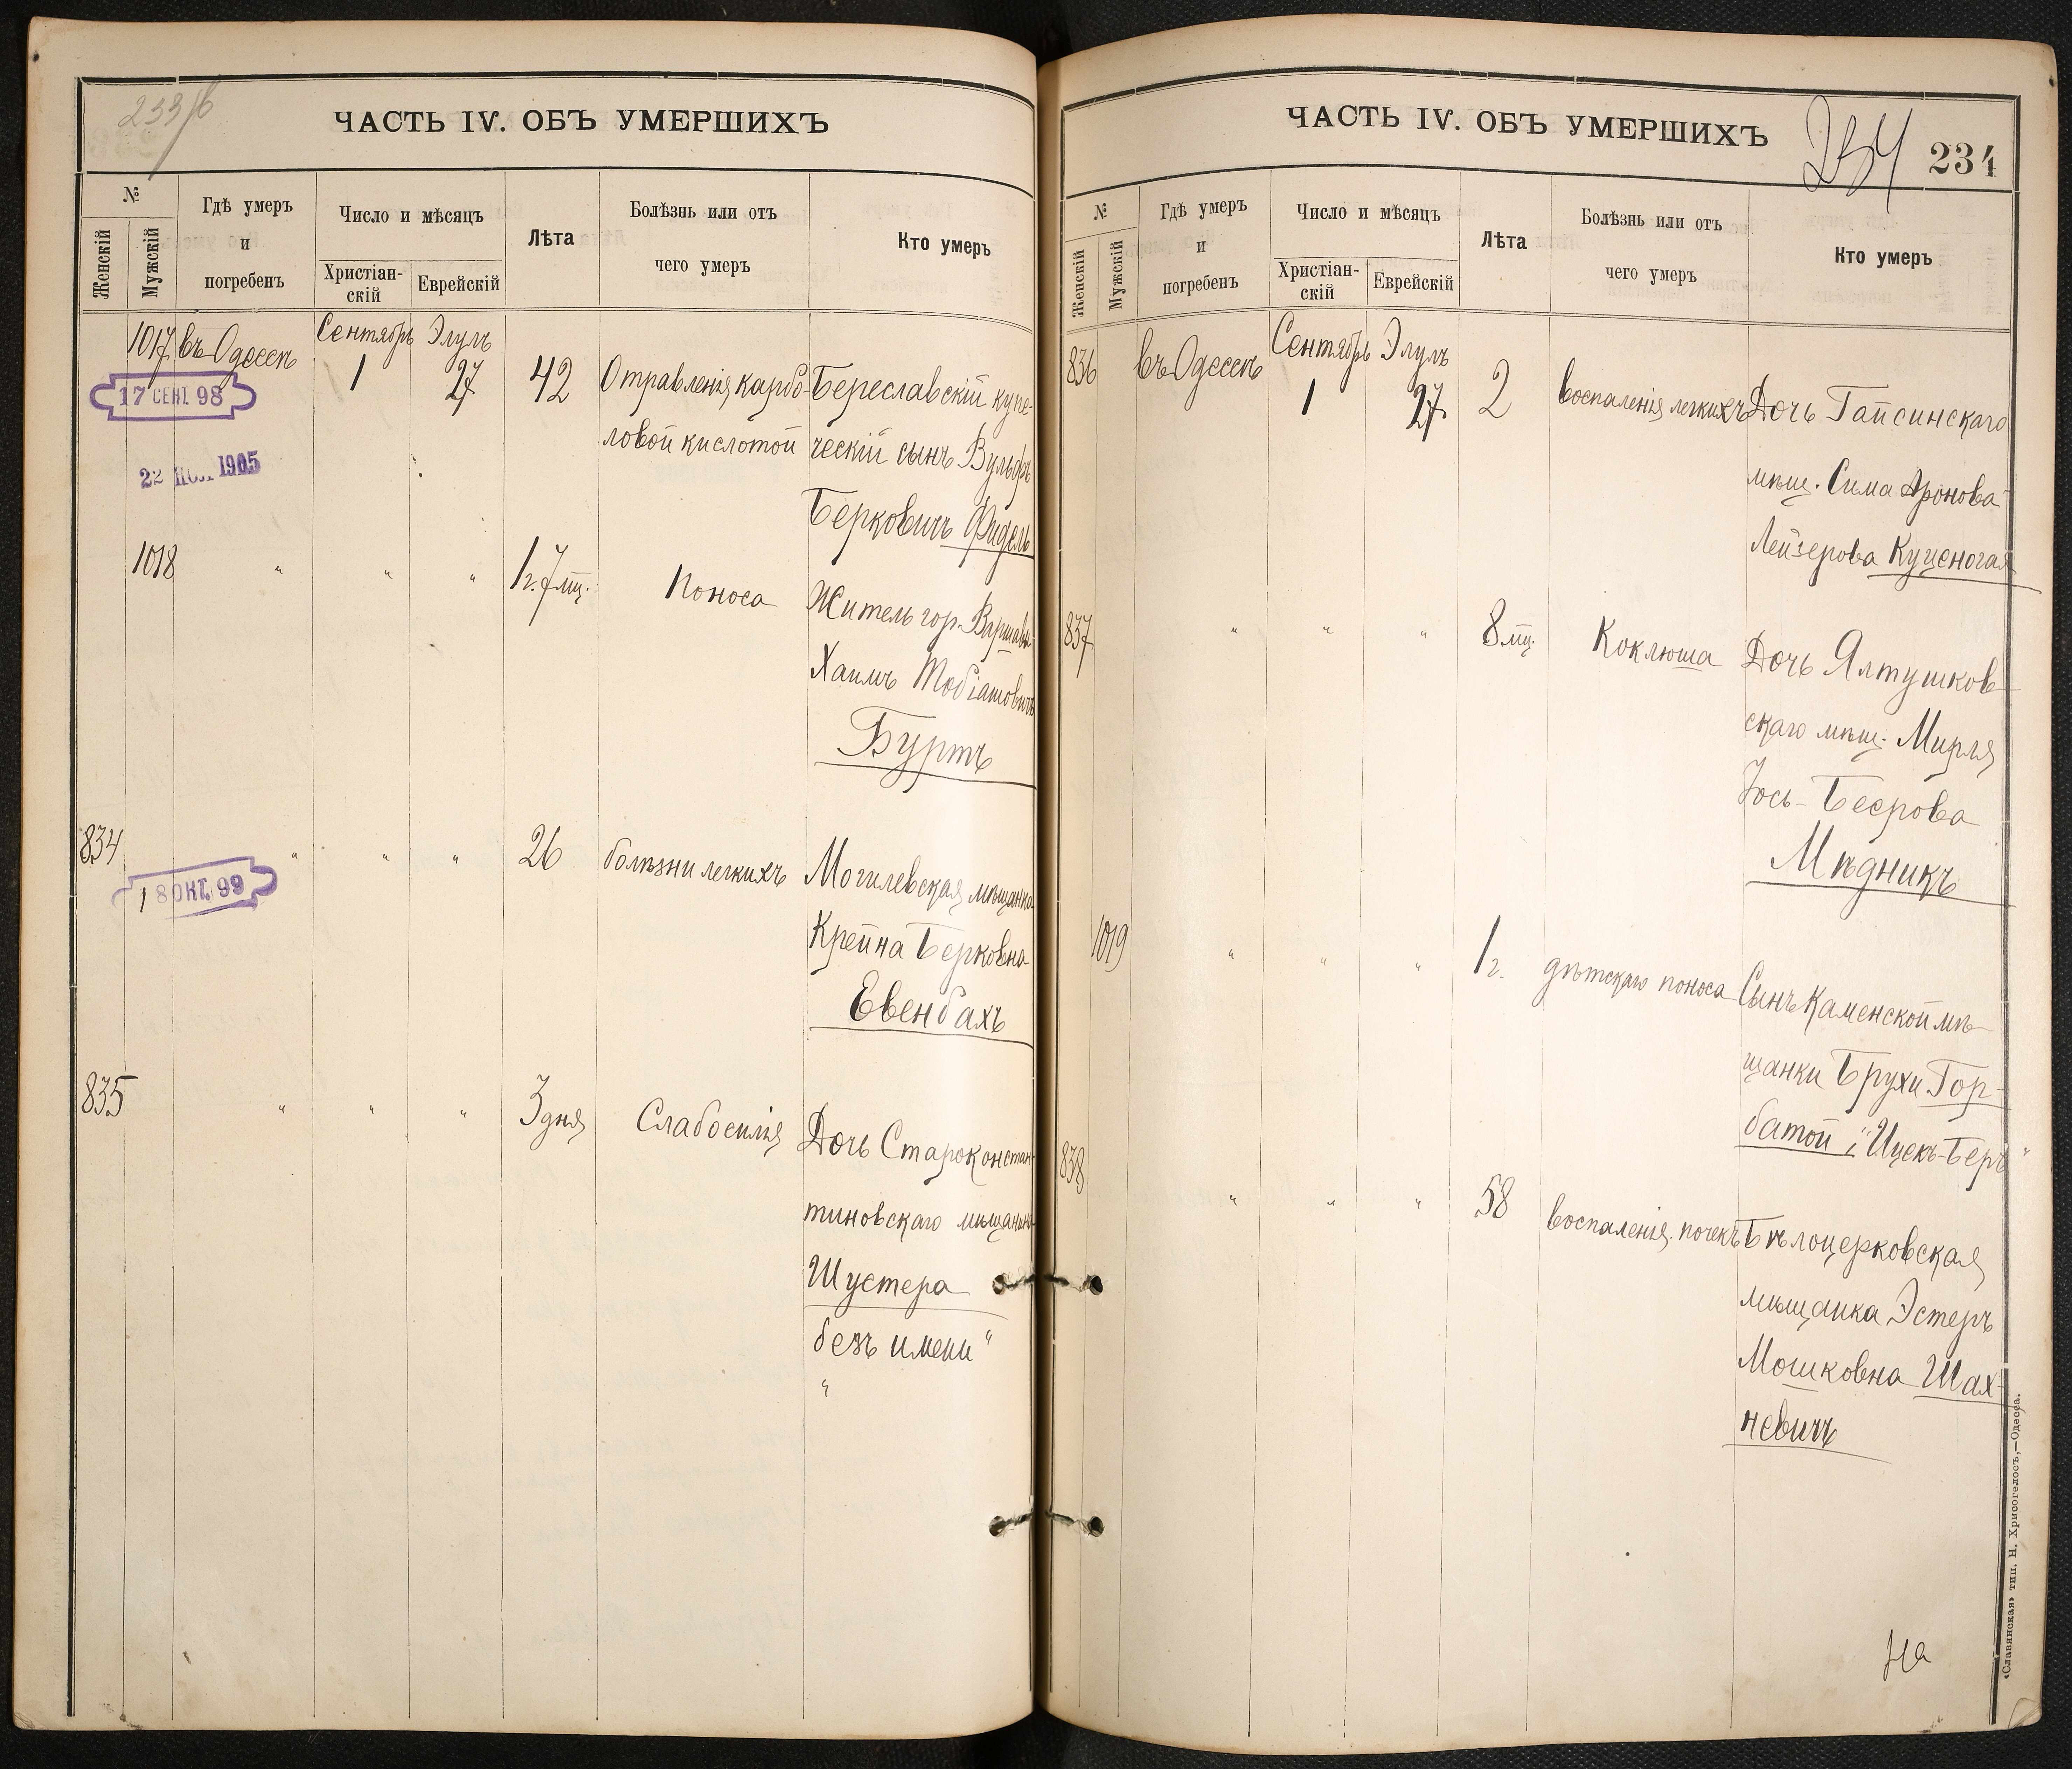 233/б
ЧАСТЬ IV. ОБЪ УМЕРШИХЪ
№
Женскій
Мужскій
Гдѣ умеръ
и
погребенъ
Число и мѣсяцъ
Христіан-
скій
Еврейскій
Лѣта
Болѣзнь или отъ
чего умеръ
Кто умеръ
1017 въ Одессѣ Сентябрь Элулъ
1 27 42 Отравленія карбо- Береславскій купе-
17 СЕНТ. 98
ловой кислотой ческій сынъ Вульфъ
22 НОЯ 1905
Берковичъ Фидель
1018 " " " 1г. 7 мц. Поноса Житель гор. Варшавы
Хаимъ Тобіашовичъ
Буртъ
834 " " " 26 болѣзни легкихъ Могилевская мѣщанка
18 ОКТ. 99
Крейна Берковна
Евенбахъ
835 " " " 3 дня Слабосилія Дочь Староконстан-
тиновскаго мѣщанина
Шустера
безъ имени "
"
ЧАСТЬ IV. ОБЪ УМЕРШИХЪ
234
234
№
Женскій
Мужскій
Гдѣ умеръ
и
погребенъ
Число и мѣсяцъ
Христіан-
скій
Еврейскій
Лѣта
Болѣзнь или отъ
чего умеръ
Кто умеръ
836 въ Одессѣ Сентябрь Элулъ
1 27 2 воспаленія легкихъ Дочь Гайсинскаго
мѣщ. Сима Аронова-
Лейзерова Куценогая
837 " " " 8 мц. Коклюша Дочь Ялтушков-
скаго мѣщ. Мирля
Іось-Беерова
Мѣдникъ
1019 " " " 1 г. дѣтскаго поноса Сынъ Каменской мѣ-
щанки Брухи Гор-
батой i "Ицекъ-Беръ"
838 " " " 58 воспаленія почекъ Бѣлоцерковская
мѣщанка Эстеръ
Мошковна Шах-
невичъ
На
«Славянская» тип. Н. Хрисогелосъ,—Одесса.